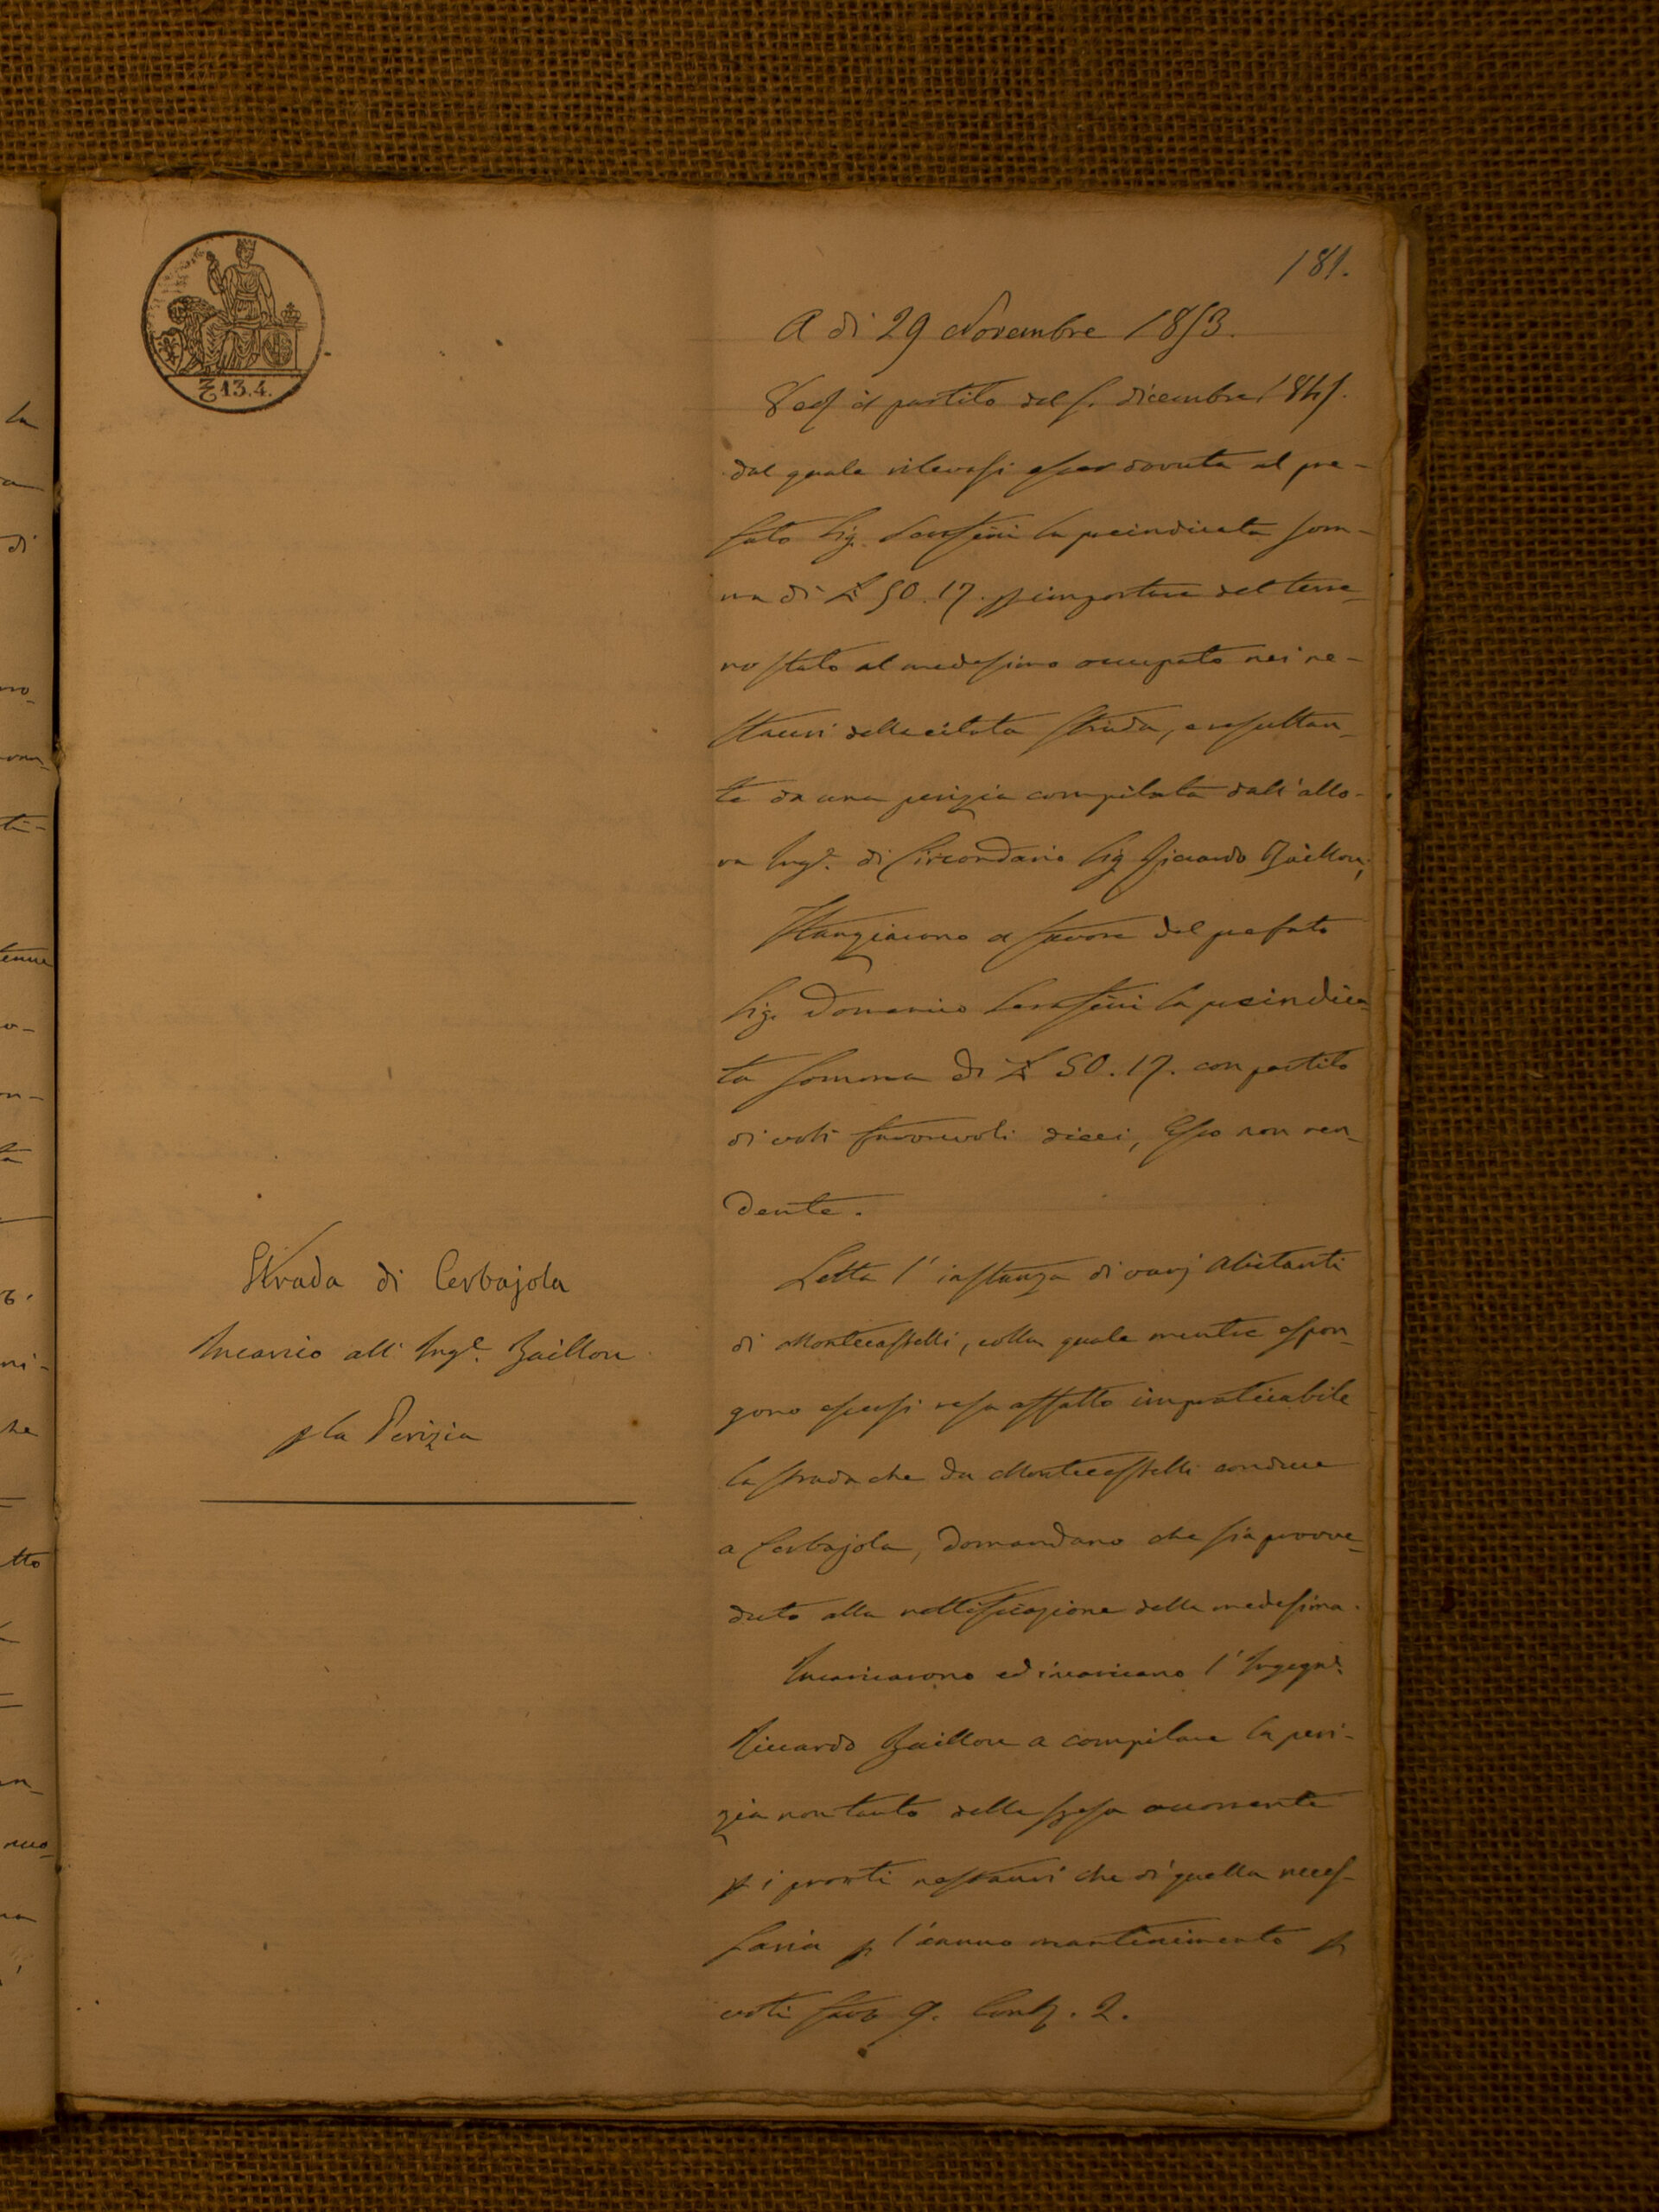 181.
₤ 13.4.
A di 29 Novembre 1853.
il partito del 5. dicembre 1845.
dal quale rilevasi esser dovuta al pre-
fato Sig. Serafini la preindicata som-
ma di £ 50.17. p importare del terre-
no stato al medesimo occupato nei re-
stauri della citata Strada, e resultan-
te da una perizia compilata dall'allo-
ra Ing.e di Circondario Sig. Riccardo Baillou;
Stanziarono a favore del prefato
Sig. Domenico Serafini la preindica-
ta Somma di £ 50.17. con partito
di voti favorevoli dieci, Esso non ren-
dente.
Letta l'instanza di varj Abitanti
di Montecastelli, colla quale mentre espon-
gono essersi resa affatto impraticabile
la strada che da Montecastelli conduce
a Cerbajola, domandano che sia provve-
duto alla rettificazione della medesima.
Strada di Cerbajola
Incarico all' Ing.e Baillou
p la Perizia
Incaricarono ed incaricano l'Ingegn.e
Riccardo Baillou a compilare la peri-
zia non tanto della spesa occorrente
p i pronti restauri che di quella neces-
saria p l'annuo mantenimento p
voti fav. 9. Contr. 2.